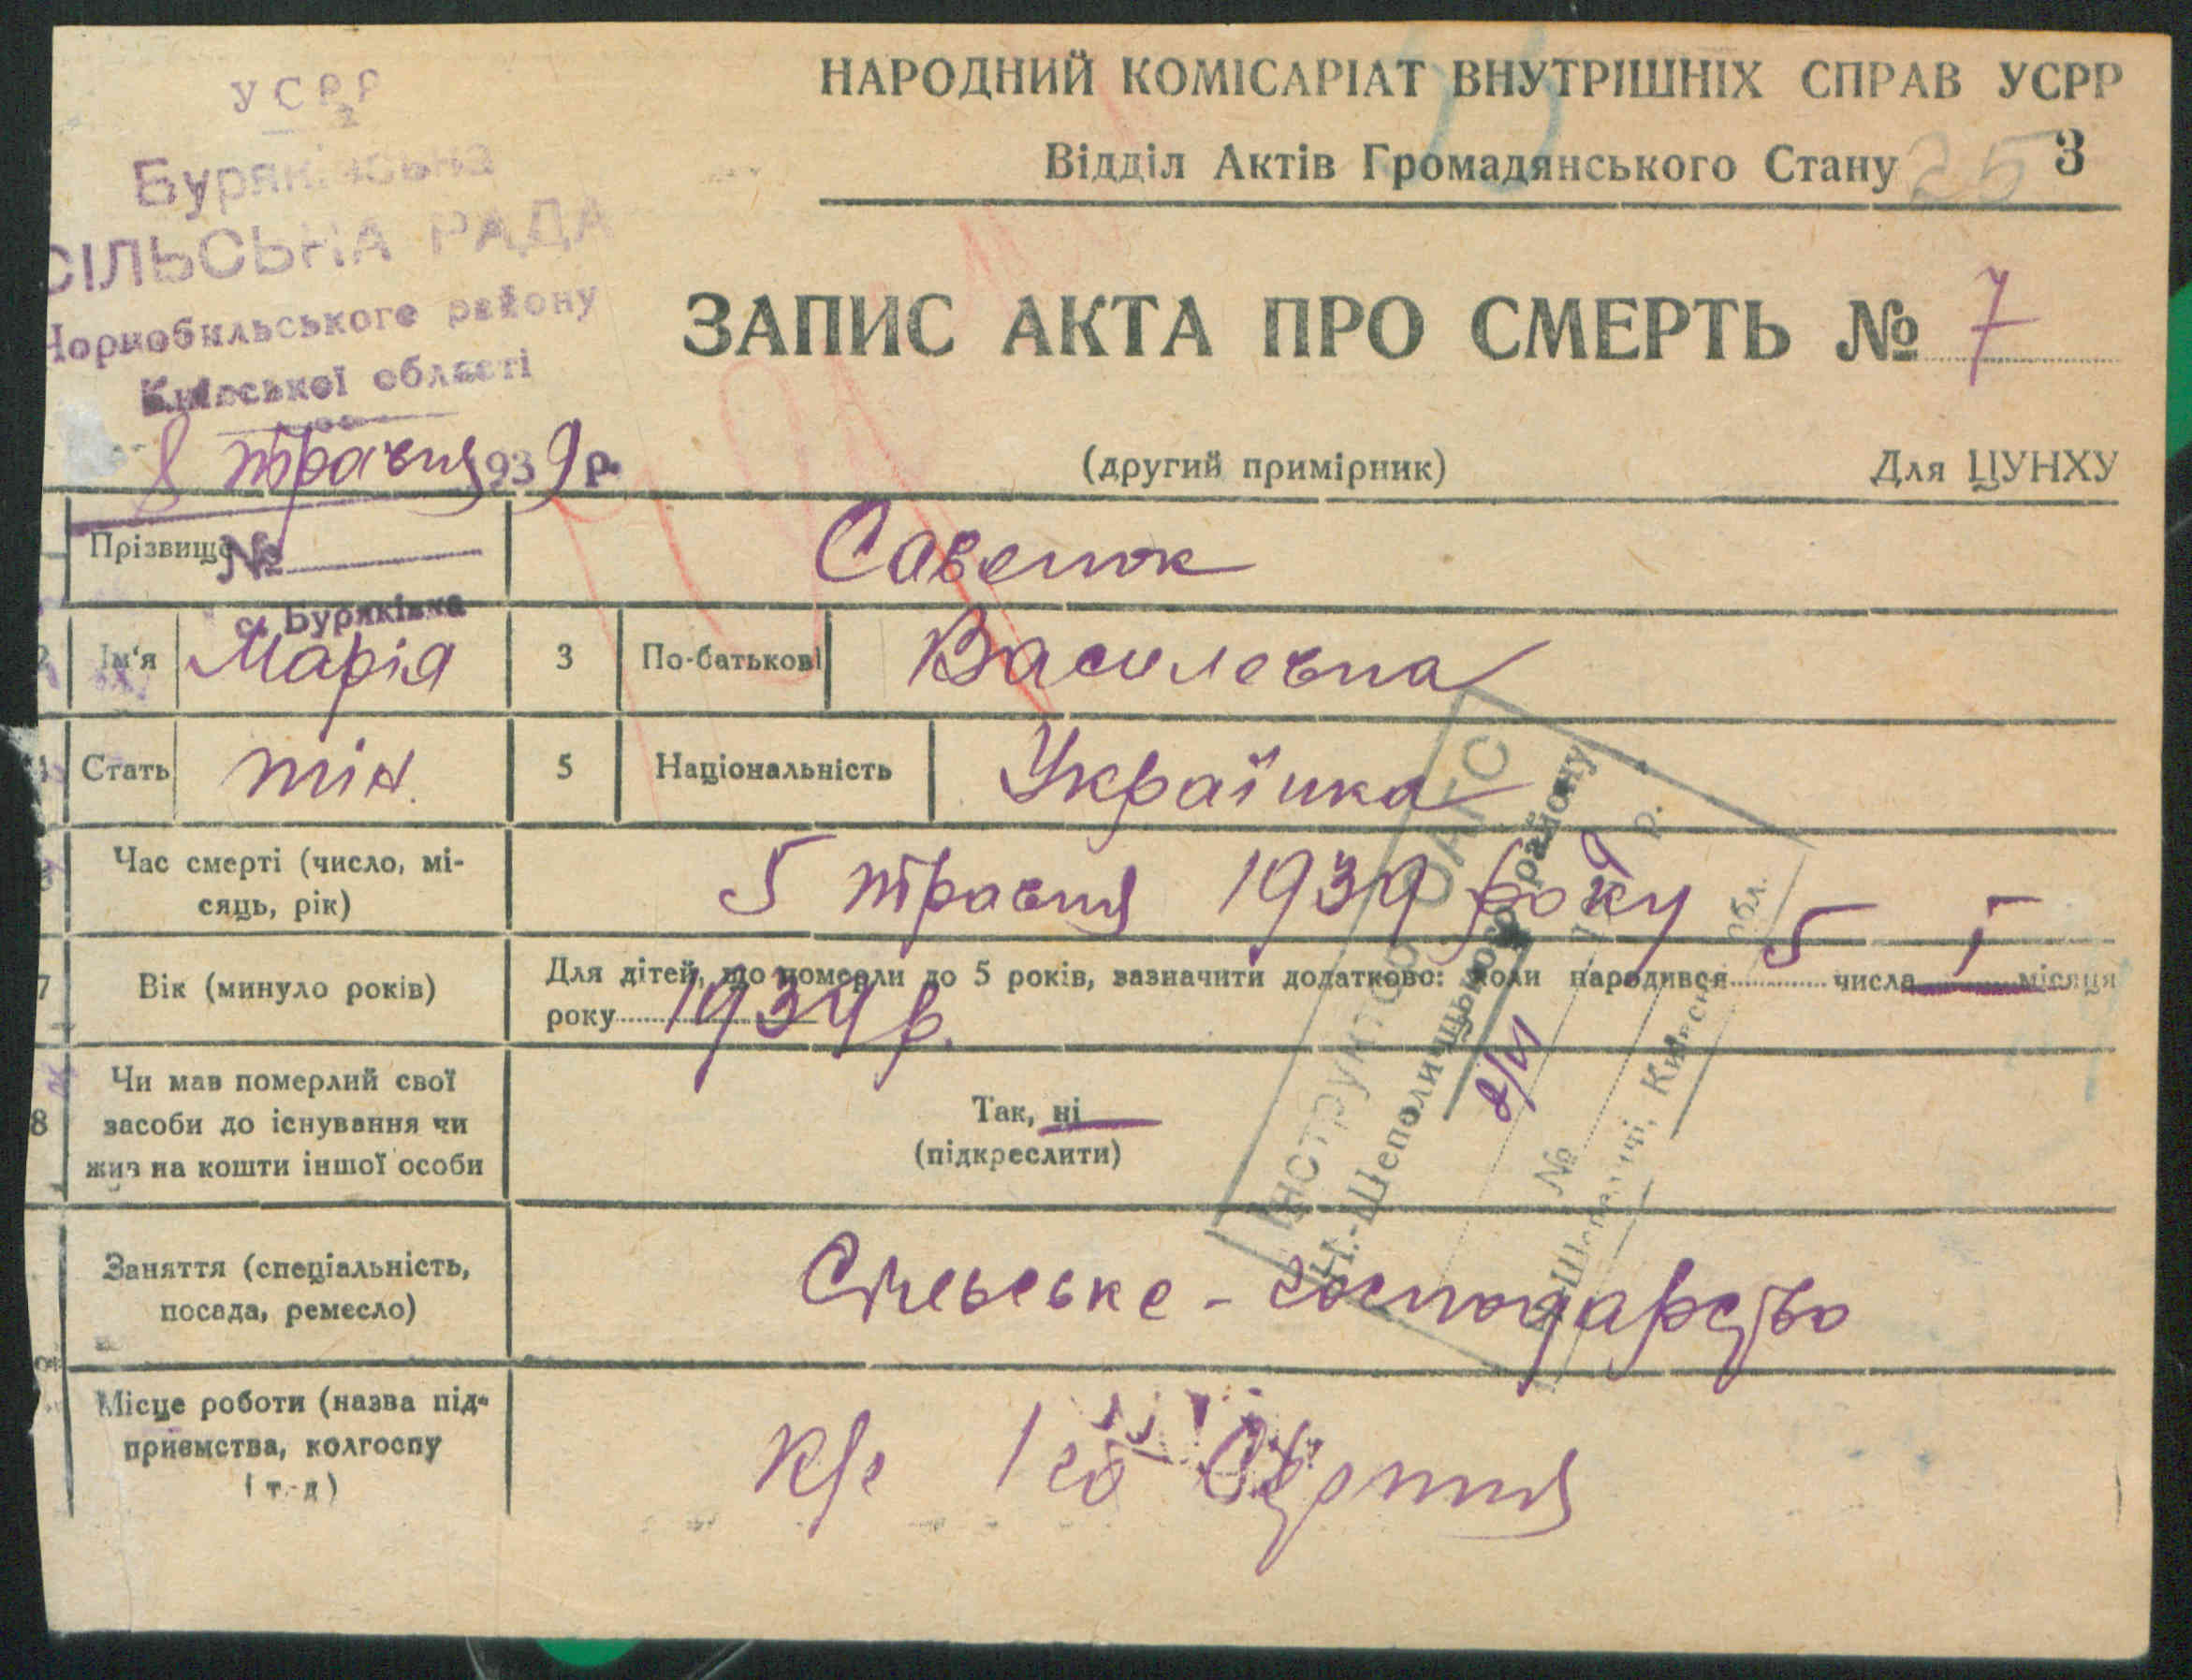 УСРР
Буряківська
СІЛЬСЬКА РАДА
Чорнобильського району
Київської області
8 травня 1939 р.
№
с. Буряківка
НАРОДНИЙ КОМІСАРІАТ ВНУТРІШНІХ СПРАВ УСРР
Відділ Актів Громадянського Стану 25 3
ЗАПИС АКТА ПРО СМЕРТЬ № 7
(другий примірник) Для ЦУНХУ
Прізвище Савенок
2 Ім'я Марія 3 По-батькові Василевна
4 Стать жін. 5 Національність Українка
Час смерті (число, мі-
сяць, рік) 5 травня 1939 року
7 Вік (минуло років) Для дітей, що померли до 5 років, зазначити додатково: коли народився 5 числа 1 місяця
року 1939 р.
8 Чи мав померлий свої
засоби до існування чи
жив на кошти іншої особи
Так, ні
(підкреслити)
Заняття (спеціальність,
посада, ремесло) Сільське-господарство
Місце роботи (назва під-
приємства, колгоспу
і т.-д) к/г 1го Серпня
Інструктор ЗАГС
Н.-Шепелицького району
р.
№
Н-Шепеличі, Київськ. обл.